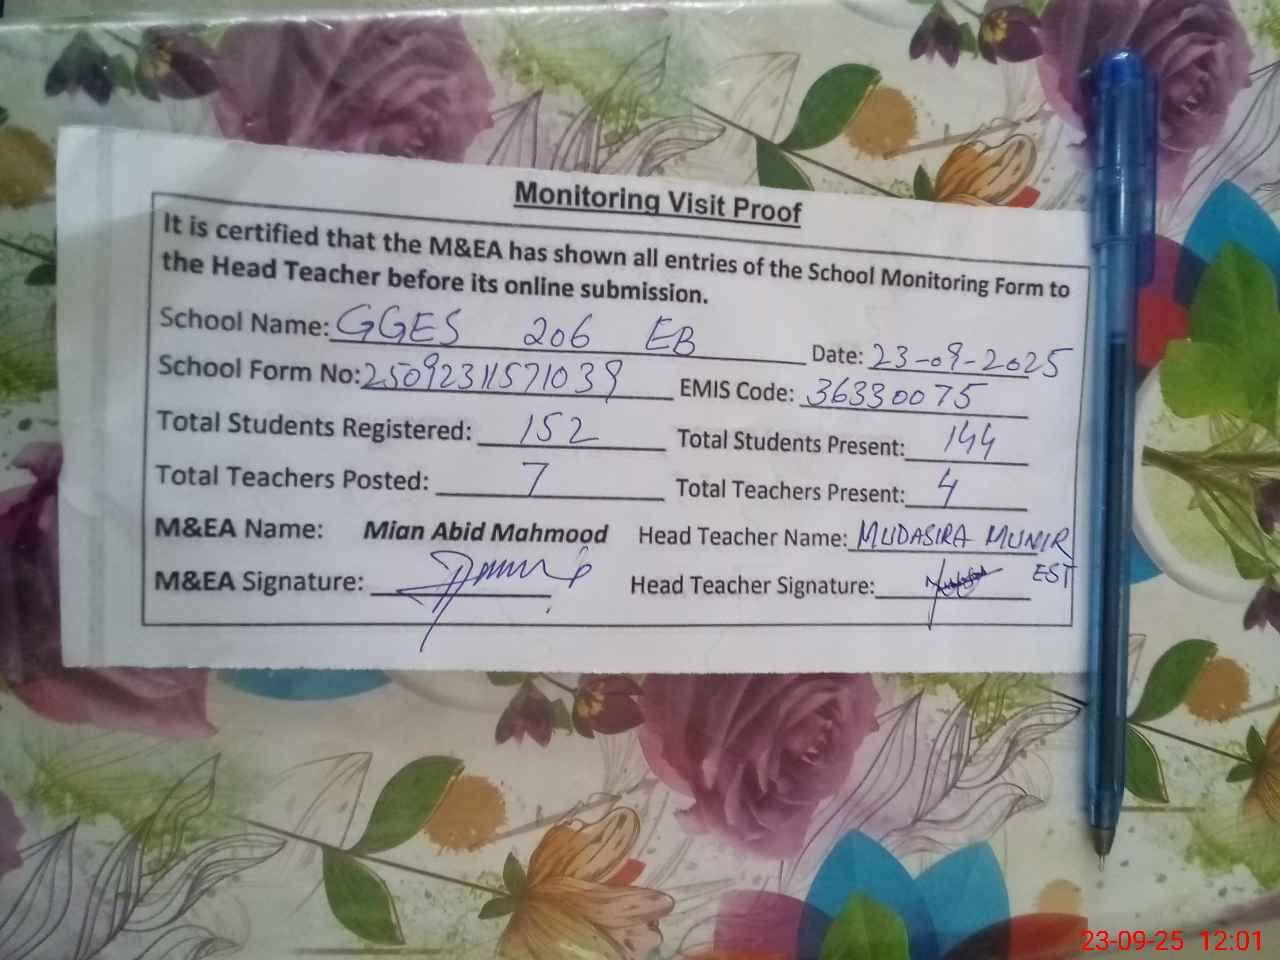 Monitoring Visit Proof
It is certified that the M&EA has shown all entries of the School Monitoring Form to
the Head Teacher before its online submission.
School Name: GGES 206 EB Date: 23-09-2025
School Form No: 25092311571039 EMIS Code: 36330075
Total Students Registered: 152 Total Students Present: 144
Total Teachers Posted: 7 Total Teachers Present: 4
M&EA Name: Mian Abid Mahmood Head Teacher Name: MUDASIRA MUNIR
EST
M&EA Signature: Head Teacher Signature:
23-09-25 12:01